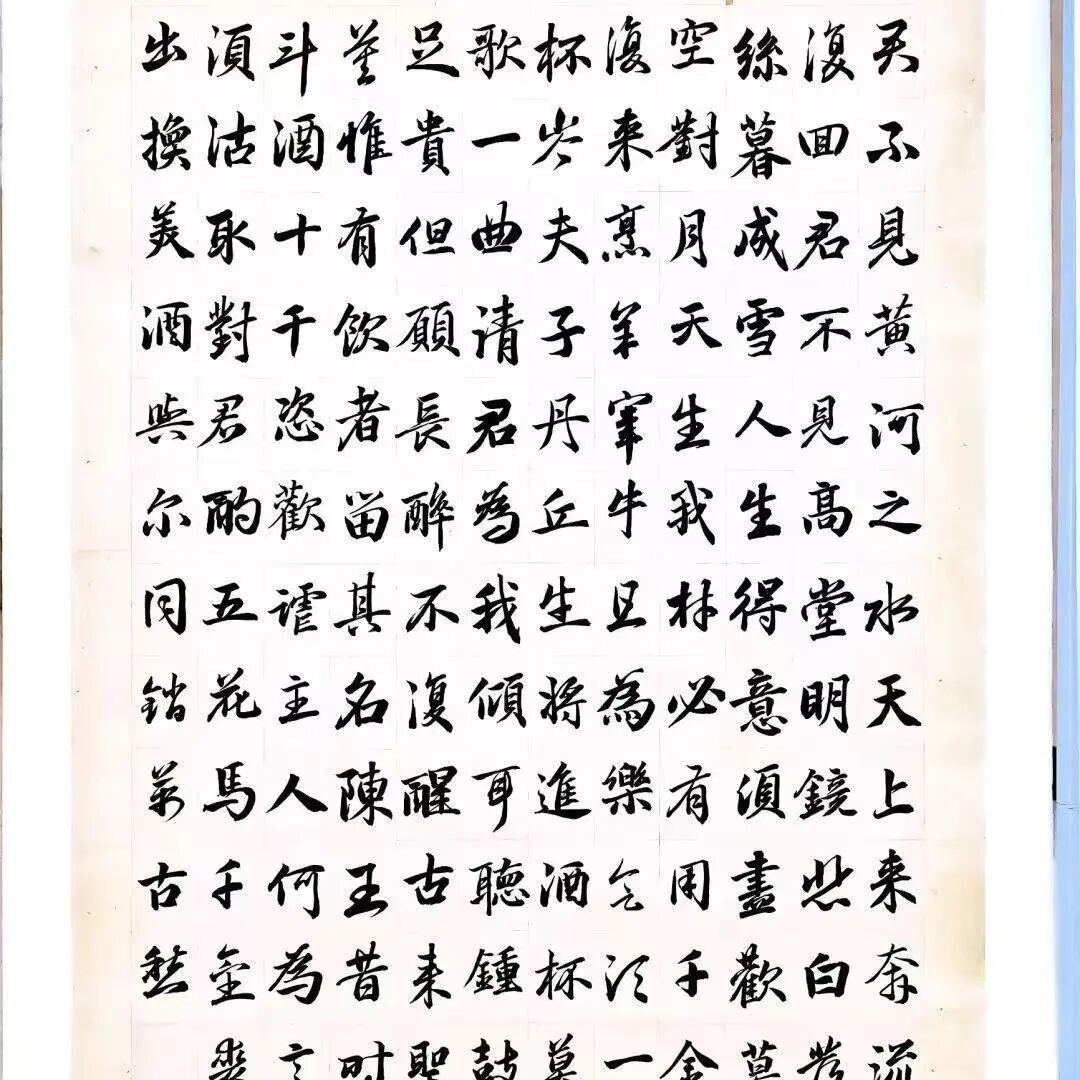 君不見黃河之水天上来奔流
復回君不見高堂明鏡悲白髮
絲暮成雪人生得意須盡歡莫
空對月天生我材必有用千金
復来烹羊宰牛且為樂會須一
杯岑夫子丹丘生將進酒杯莫
歌一曲请君為我傾耳聽鍾鼓
足貴但願長醉不復醒古来聖
寞惟有飲者留其名陳王昔时
斗酒十千恣歡謔主人何為言
須沽取對君酌五花馬千金裘
出換美酒與尔同銷萬古愁